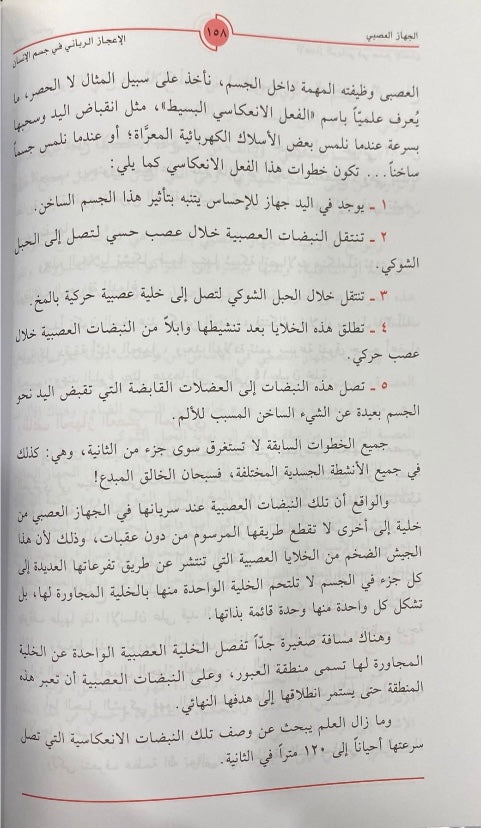 الجهاز العصبي
١٥٨
الإعجاز الرباني في جسم الإنسان
العصبي وظيفته المهمة داخل الجسم، نأخذ على سبيل المثال لا الحصر، ما
يُعرف علميّاً باسم «الفعل الانعكاسي البسيط»، مثل انقباض اليد وسحبها
بسرعة عندما نلمس بعض الأسلاك الكهربائية المعرَّاة؛ أو عندما نلمس جسماً
ساخناً... تكون خطوات هذا الفعل الانعكاسي كما يلي:
١ ـ يوجد في اليد جهاز للإحساس يتنبه بتأثير هذا الجسم الساخن.
٢ ـ تنتقل النبضات العصبية خلال عصب حسي لتصل إلى الحبل
الشوكي.
٣ ـ تنتقل خلال الحبل الشوكي لتصل إلى خلية عصبية حركية بالمخ.
٤ ـ تطلق هذه الخلايا بعد تنشيطها وابلاً من النبضات العصبية خلال
عصب حركي.
٥ ـ تصل هذه النبضات إلى العضلات القابضة التي تقبض اليد نحو
الجسم بعيدة عن الشيء الساخن المسبب للألم.
جميع الخطوات السابقة لا تستغرق سوى جزء من الثانية، وهي: كذلك
في جميع الأنشطة الجسدية المختلفة، فسبحان الخالق المبدع!
والواقع أن تلك النبضات العصبية عند سريانها في الجهاز العصبي من
خلية إلى أخرى لا تقطع طريقها المرسوم من دون عقبات، وذلك لأن هذا
الجيش الضخم من الخلايا العصبية التي تنتشر عن طريق تفرعاتها العديدة إلى
كل جزء في الجسم لا تلتحم الخلية الواحدة منها بالخلية المجاورة لها، بل
تشكل كل واحدة منها وحدة قائمة بذاتها.
وهناك مسافة صغيرة جدّاً تفصل الخلية العصبية الواحدة عن الخلية
المجاورة لها تسمى منطقة العبور، وعلى النبضات العصبية أن تعبر هذه
المنطقة حتى يستمر انطلاقها إلى هدفها النهائي.
وما زال العلم يبحث عن وصف تلك النبضات الانعكاسية التي تصل
سرعتها أحياناً إلى ١٢٠ متراً في الثانية.